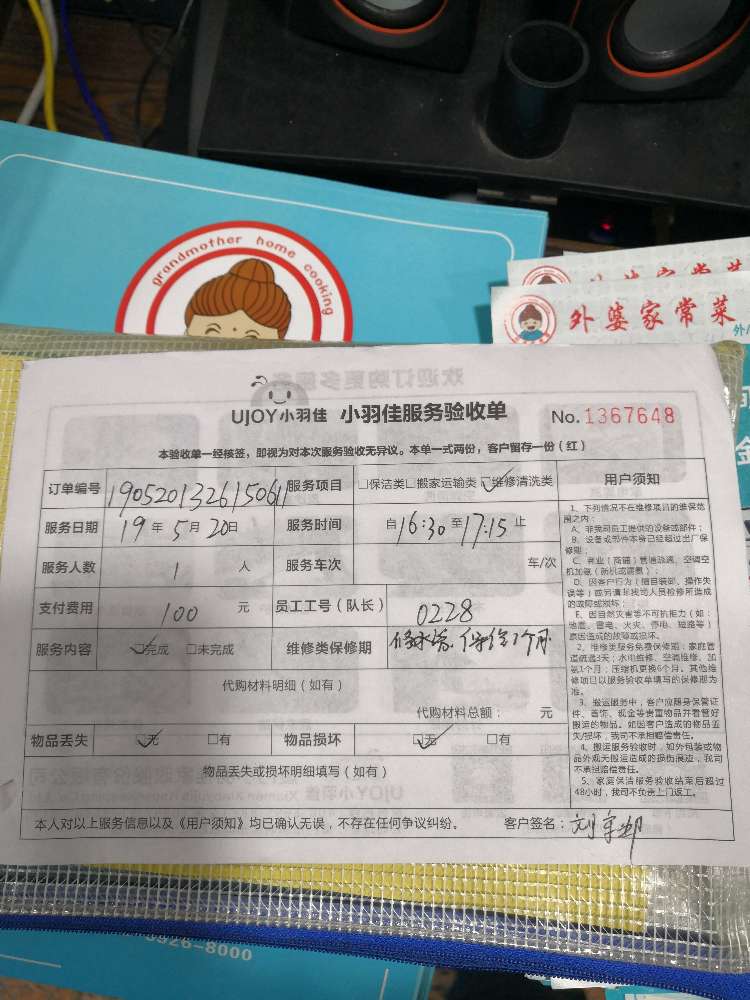 grandmother home cooking
外婆家常菜
外婆家常菜
欢迎订购更多服务
UJOY小羽佳 小羽佳服务验收单 No. 1367648
本验收单一经核签，即视为对本次服务验收无异议。本单一式两份，客户留存一份（红）
订单编号 190520132615061 服务项目 □保洁类□搬家运输类☑维修清洗类 用户须知
服务日期 19年5月20日 服务时间 自16:30至17:15止
服务人数 1 人 服务车次 车/次
支付费用 100 元 员工工号（队长） 0228
服务内容 ☑完成 □未完成 维修类保修期 1个月
代购材料明细（如有）
代购材料总额： 元
物品丢失 ☑无 □有 物品损坏 ☑无 □有
物品丢失或损坏明细填写（如有）
1、下列情况不在维修项目的维保范
围之内：
A、非我司员工提供的设备或部件；
B、设备或部件本身已经超过出厂保
修期；
C、商业（商铺）管道疏通、空调空
机加氨（新机或需氨）；
D、因客户行为（擅自装卸、操作失
误等）或另请非我司人员检修所造成
的故障或损坏；
E、因自然灾害等不可抗拒力（如：
地震、雷电、火灾、停电、短路等）
原因造成的故障或损坏。
2、维修类服务免费保修期：家庭管
道疏通3天；水电维修、空调维修、加
氨1个月；压缩机更换6个月。其他维
修项目以服务验收单填写的保修期为
准。
3、搬运服务中，客户应随身保管证
件、首饰、现金等贵重物品并看管好
搬运的物品。如因客户造成的物品丢
失/损坏，我司不承担赔偿责任。
4、搬运服务验收时，如外包装或物
品外观无搬运造成的损伤痕迹，我司
不承担赔偿责任。
5、家庭保洁服务验收结束后超过
48小时，我司不负责上门返工。
本人对以上服务信息以及《用户须知》均已确认无误，不存在任何争议纠纷。 客户签名：
3926-8000